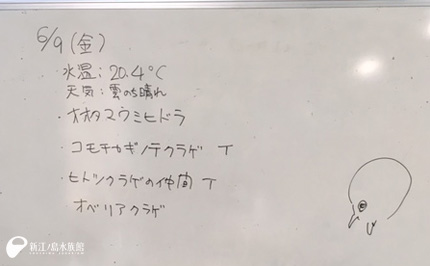 6/9(金)
・水温:20.4℃
天気:曇のち晴れ
・オオタマウミヒドラ
・コモチカギノテクラゲ T
・ヒトツクラゲの仲間 T
オベリアクラゲ
新江ノ島水族館